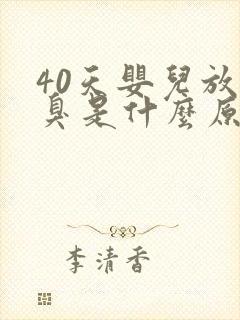 40天嬰兒放
臭是什麼原
李清香